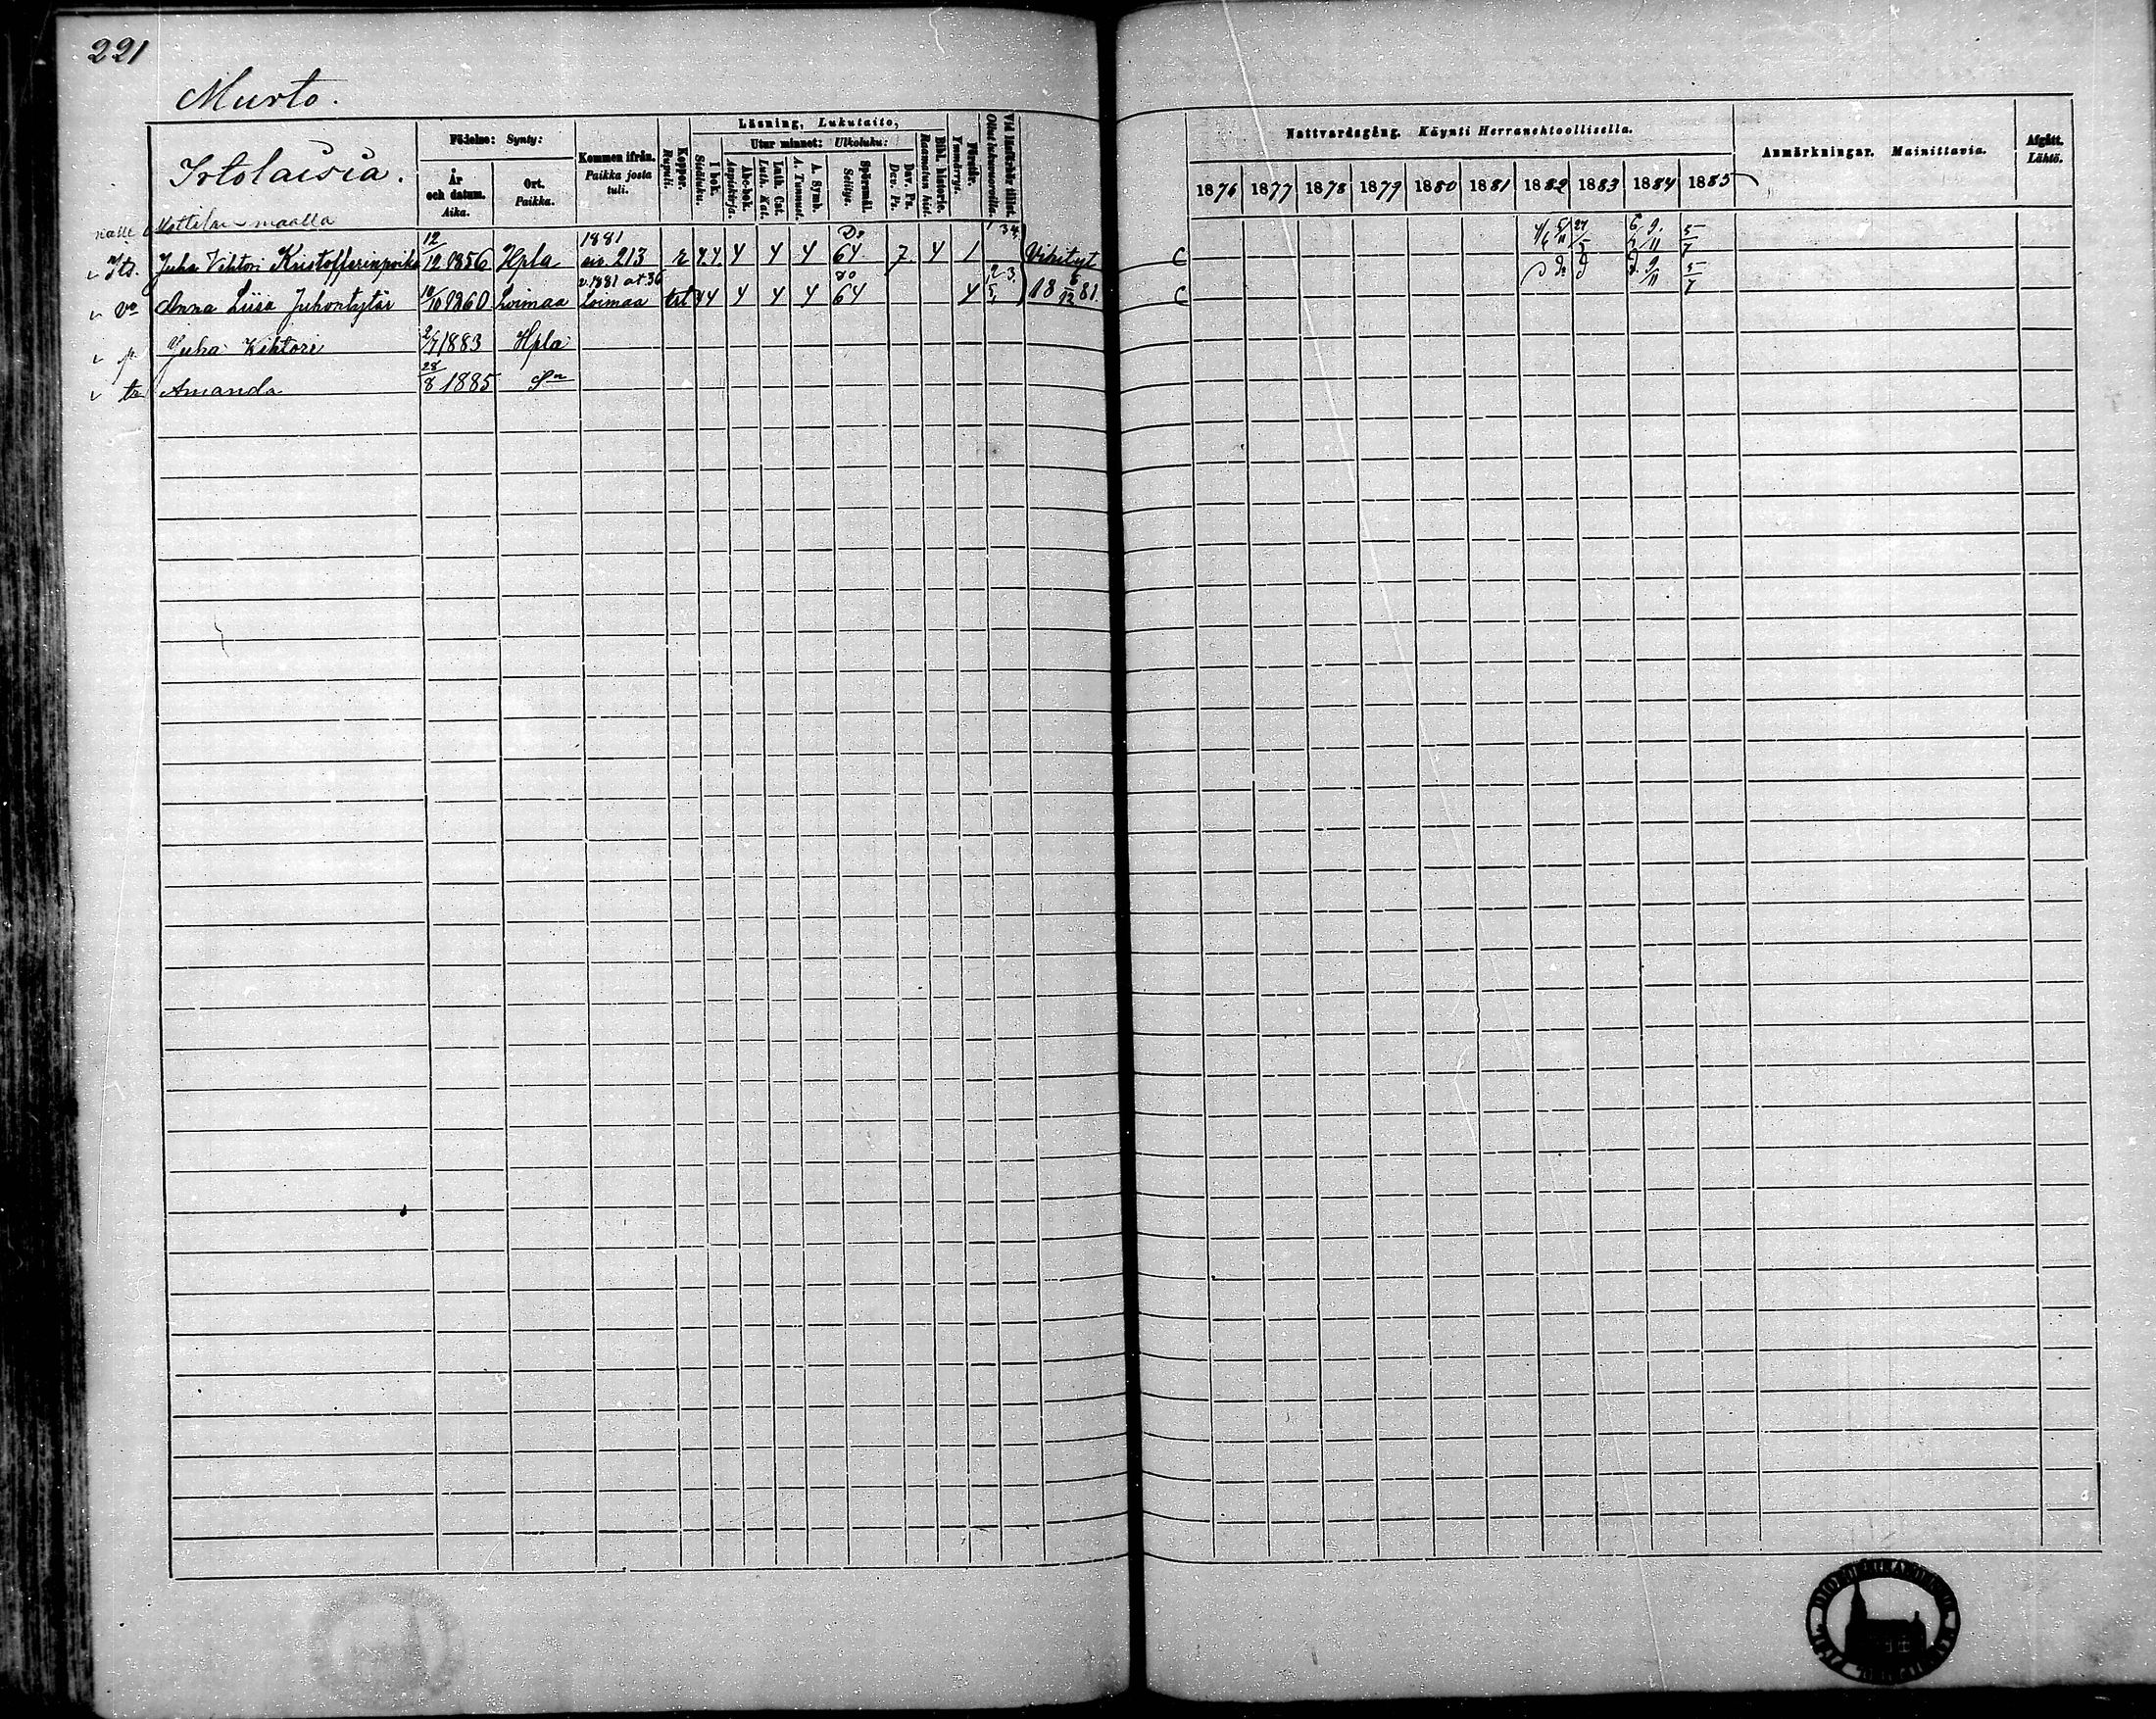 221
Murto.
Irtolaisia.
Födelse: Synty:
År och datum. Aika.
Ort. Paikka.
Kommen ifrån. Paikka josta tuli.
Koppor. Rupuli.
Läsning, Lukutaito,
I bok. Sisäluku.
Utur minnet: Ulkoluku:
Abc-bok. Aapiskirja.
Luth. Cat. Luth. Kat.
A. Symb. A. Tunnust.
Spörsmål. Selitys.
Dav. Ps. Dav. Ps.
Bibl. historie. Raamatun hist.
Förstår. Ymmärrys.
Vid läsförhör tillst. Ollut lukuvuoroilla.
Nattvardsgång. Käynti Herranehtoollisella.
1876 1877 1878 1879 1880 1881 1882 1883 1884 1885
Anmärkningar. Mainittavia.
Afgått. Lähtö.
maalla
Its. Juha Vihtori Kristofferinpoika 12/12 1856 Hpla 1881 siv. 213 r 4.4. 4 4 4 Do 64 7. 4 1 34 Vihityt C 27/5 5/7
vo Anna Liisa Juhontytär 10/10 1860 Loimaa v. 1881 at. 36 Loimaa 44 4 4 4 do 64 4 2 3. 18 8/12 81. C 9/11 5/7
p. Juha Vihtori 2/7 1883 Hpla
tr Amanda 28/8 1885 So